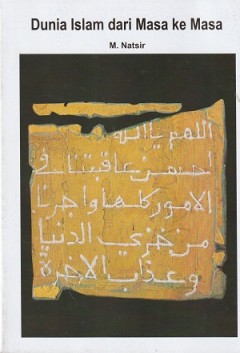 Dunia Islam dari Masa ke Masa
M. Natsir
اللهم يا الله
احسن عاقبتنا في
الامور كلها واجرنا
من خزي الدنيا
وعذاب الاخرة